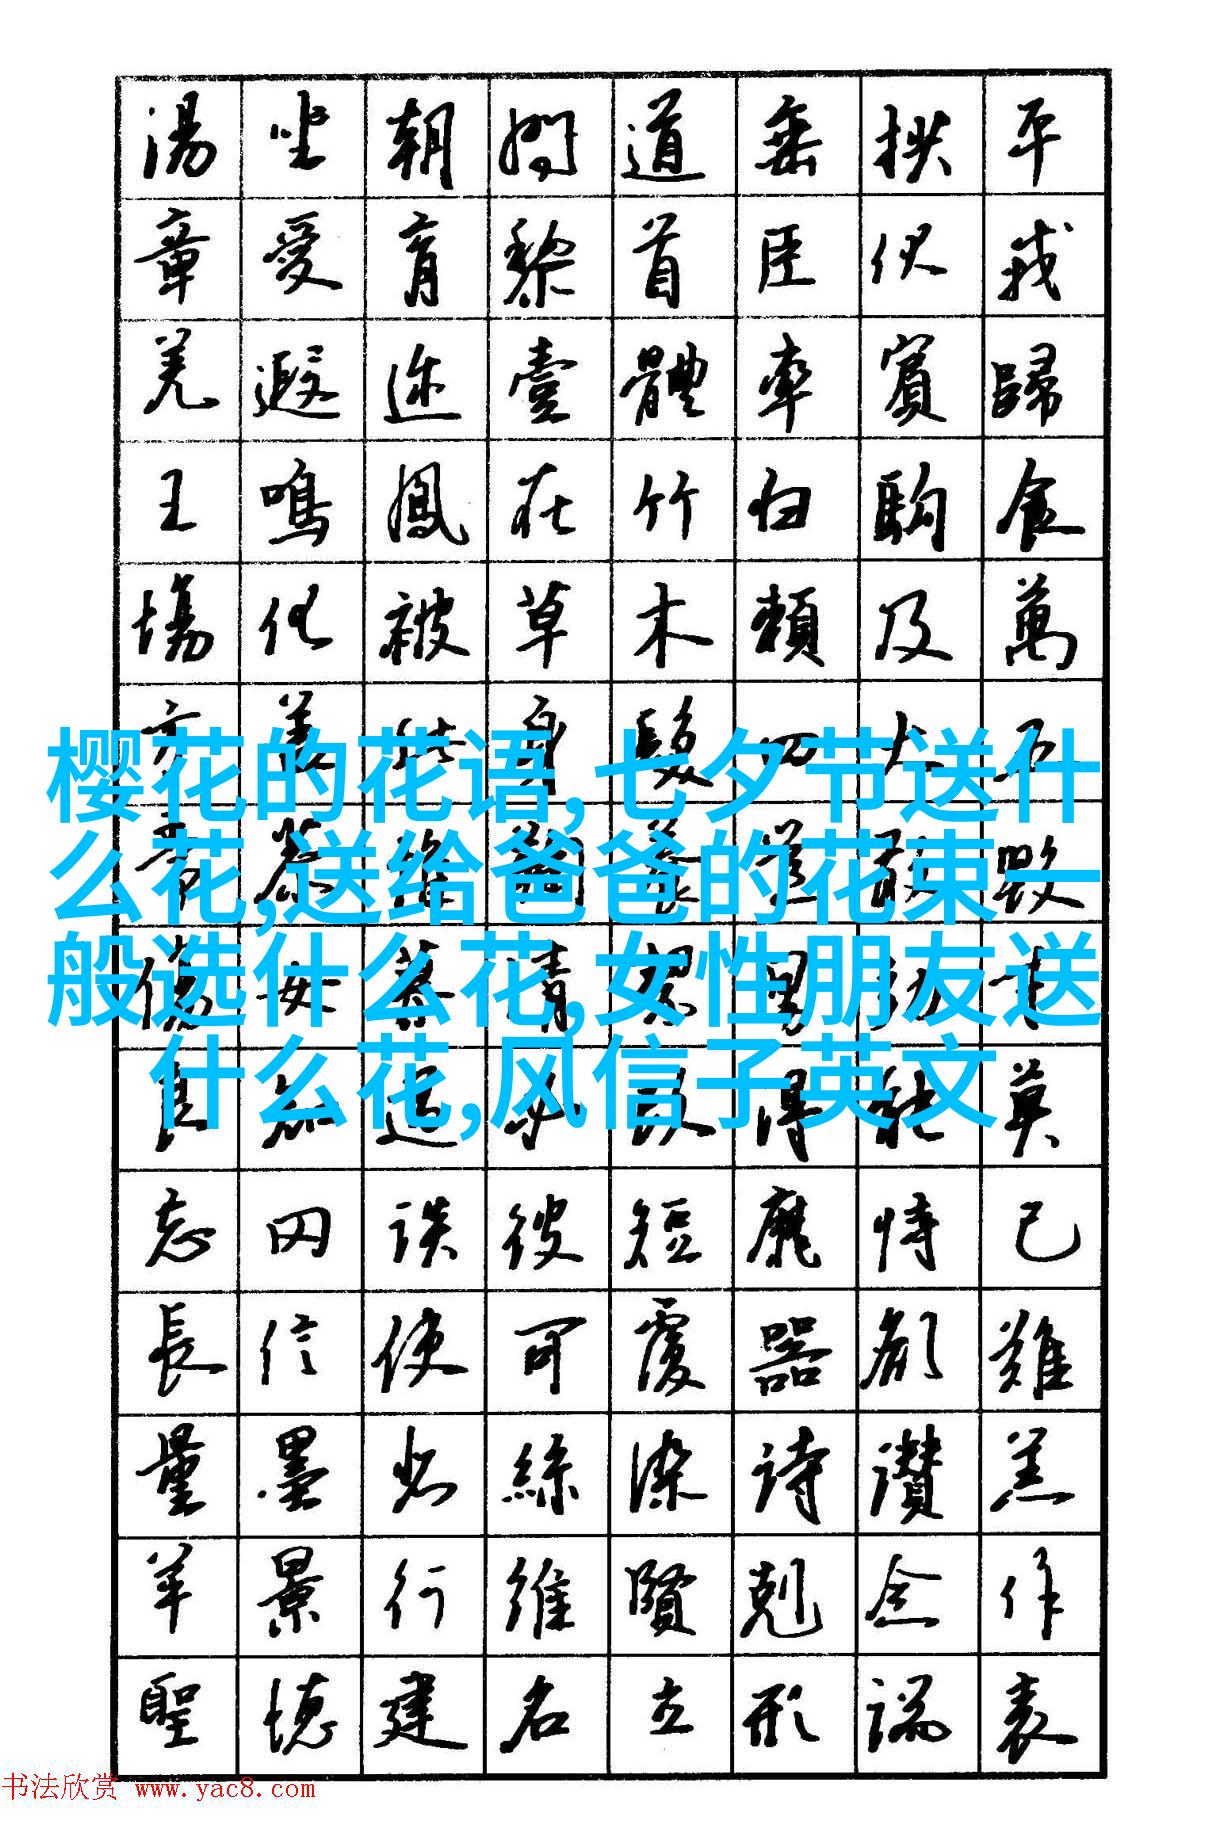 湯坐朝問道垂拱平
章愛育黎首臣伏戎
羌遐迩壹體率賓歸
王鳴鳳在竹白駒食
場化被草木賴及萬
髮四大五
樱花的花语,七夕节送什
么花,送给爸爸的花束一
般选什么花,女性朋友送
什么花,风信子英文
良知過必改得能莫
忘罔談彼短靡恃己
長信使可覆器欲難
量墨悲絲染詩讚羔
羊景行維賢剋念作
聖德建名立形端表
书法欣赏 www.yac8.com